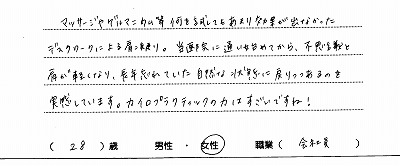 マッサージやゲルマニウム等 何を試してもあまり効果が出なかった
デスクワークによる肩こり。当院に通い始めてから、不思議と
肩が軽くなり、長年忘れていた自然な状態に戻りつつあるのを
実感しています。カイロプラクティックの力はすごいですね！
( 28 ) 歳 男性 ・ 女性 職業 ( 会社員 )